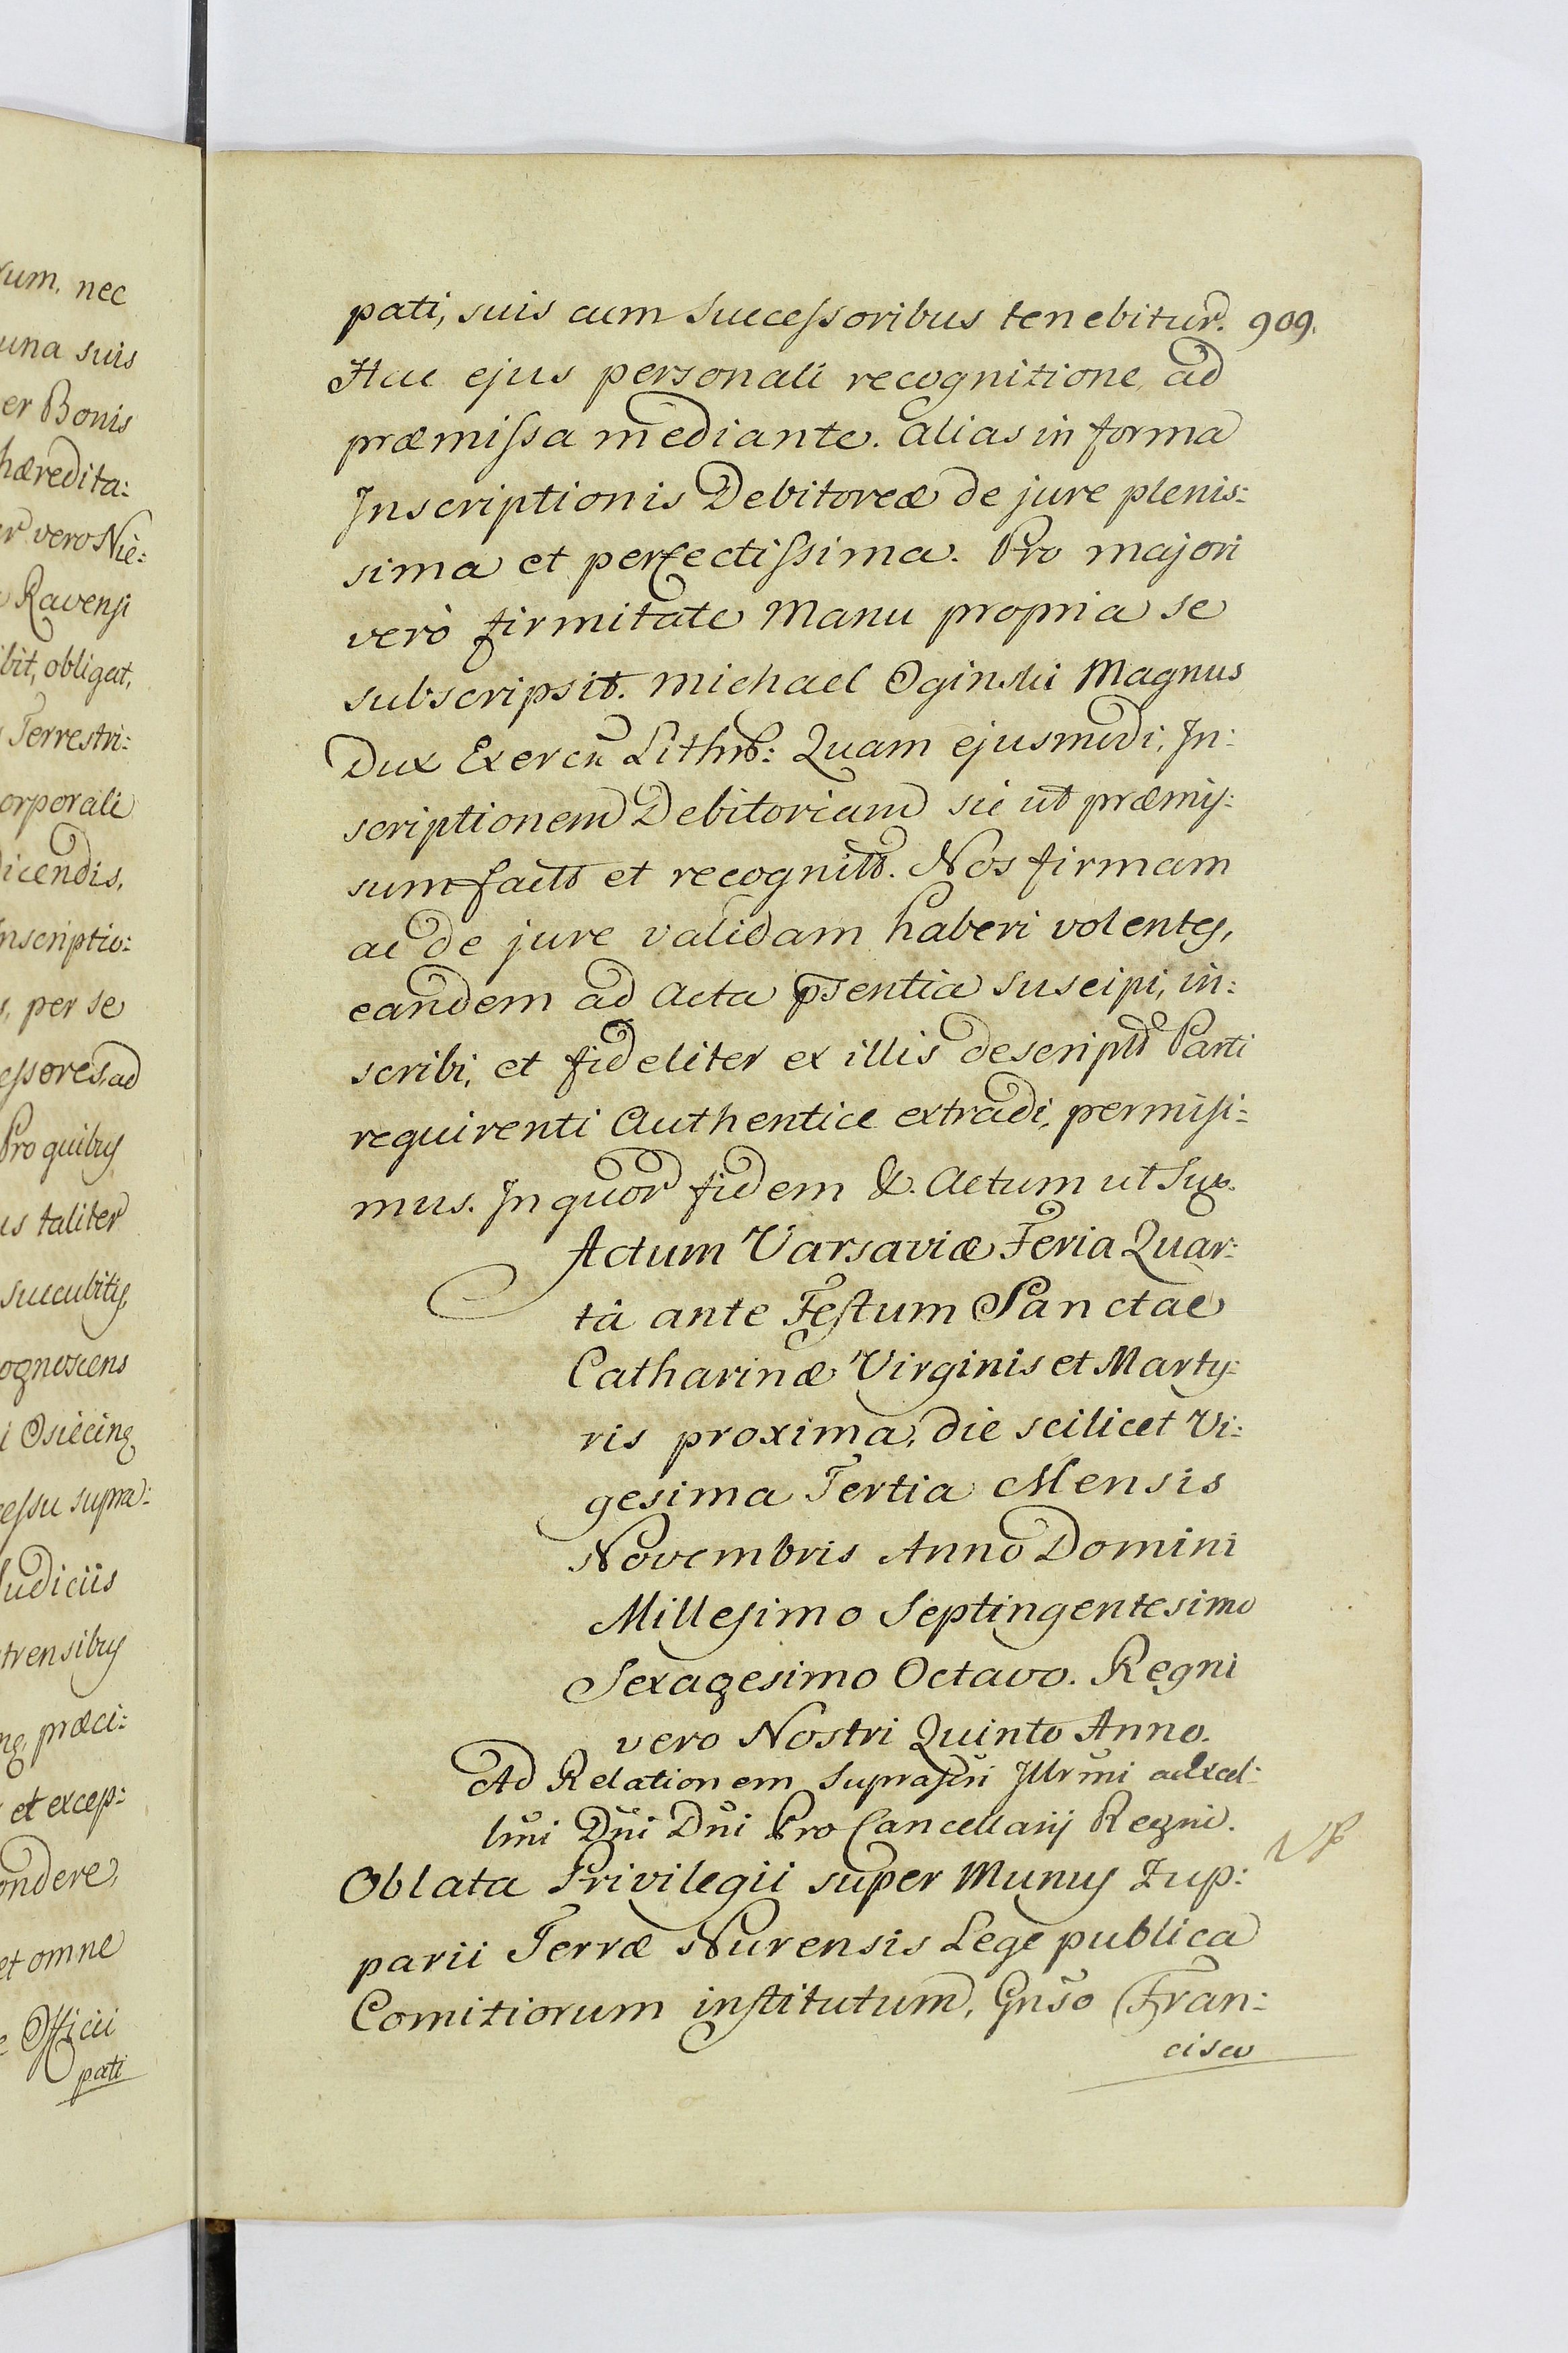 rum, nec
una suis
er Bonis
hæredita:
vero Nie:
Ravensi
bit, obligat,
Terrestri:
orporali
dicendis,
nscriptio:
per se
essores, ad
Pro quibus
us taliter
succubitis,
ognoscens
i Osiecing
cessu supra:
Judiciis
trensibus
præci:
et excep:
ondere,
et omne
Officii
pati
pati, suis cum Successoribus tenebitur. 909.
Hac ejus personali recognitione, ad
præmissa mediante. alias in forma
Inscriptionis Debitoreæ de jure plenis:
sima et perfectissima. Pro majori
verò firmitate Manu propria se
subscripsit. Michael Oginski Magnus
Dux Exercũ Lithñ: Quam ejusmodi, In:
scriptionem Debitoriam sic ut præmis:
sum factã et recognitã. Nos firmam
ac de jure validam haberi volentes,
eandem ad Acta pñsentia Suscipi, in:
scribi, et fideliter ex illis descriptã Parti
requirenti Authentice extradi, permisi:
mus. In quor fidem &. Actum ut Sup.
Actum Varsaviæ Feria Quar:
tâ ante Festum Sanctae
Catharinæ Virginis et Marty:
ris proxima, die scilicet Vi:
gesima Tertia Mensis
Novembris Anno Domini
Millesimo Septingentesimo
Sexagesimo Octavo. Regni
vero Nostri Quinto Anno.
Ad Relationem Suprascri Illrmi acExcel:
lmi Dñi Dñi Pro Cancellarij Regni.
Oblata Privilegii super Munus Zup:
parii Terræ Nurensis Lege publica
Comitiorum institutum, Gnso Fran:
cisco